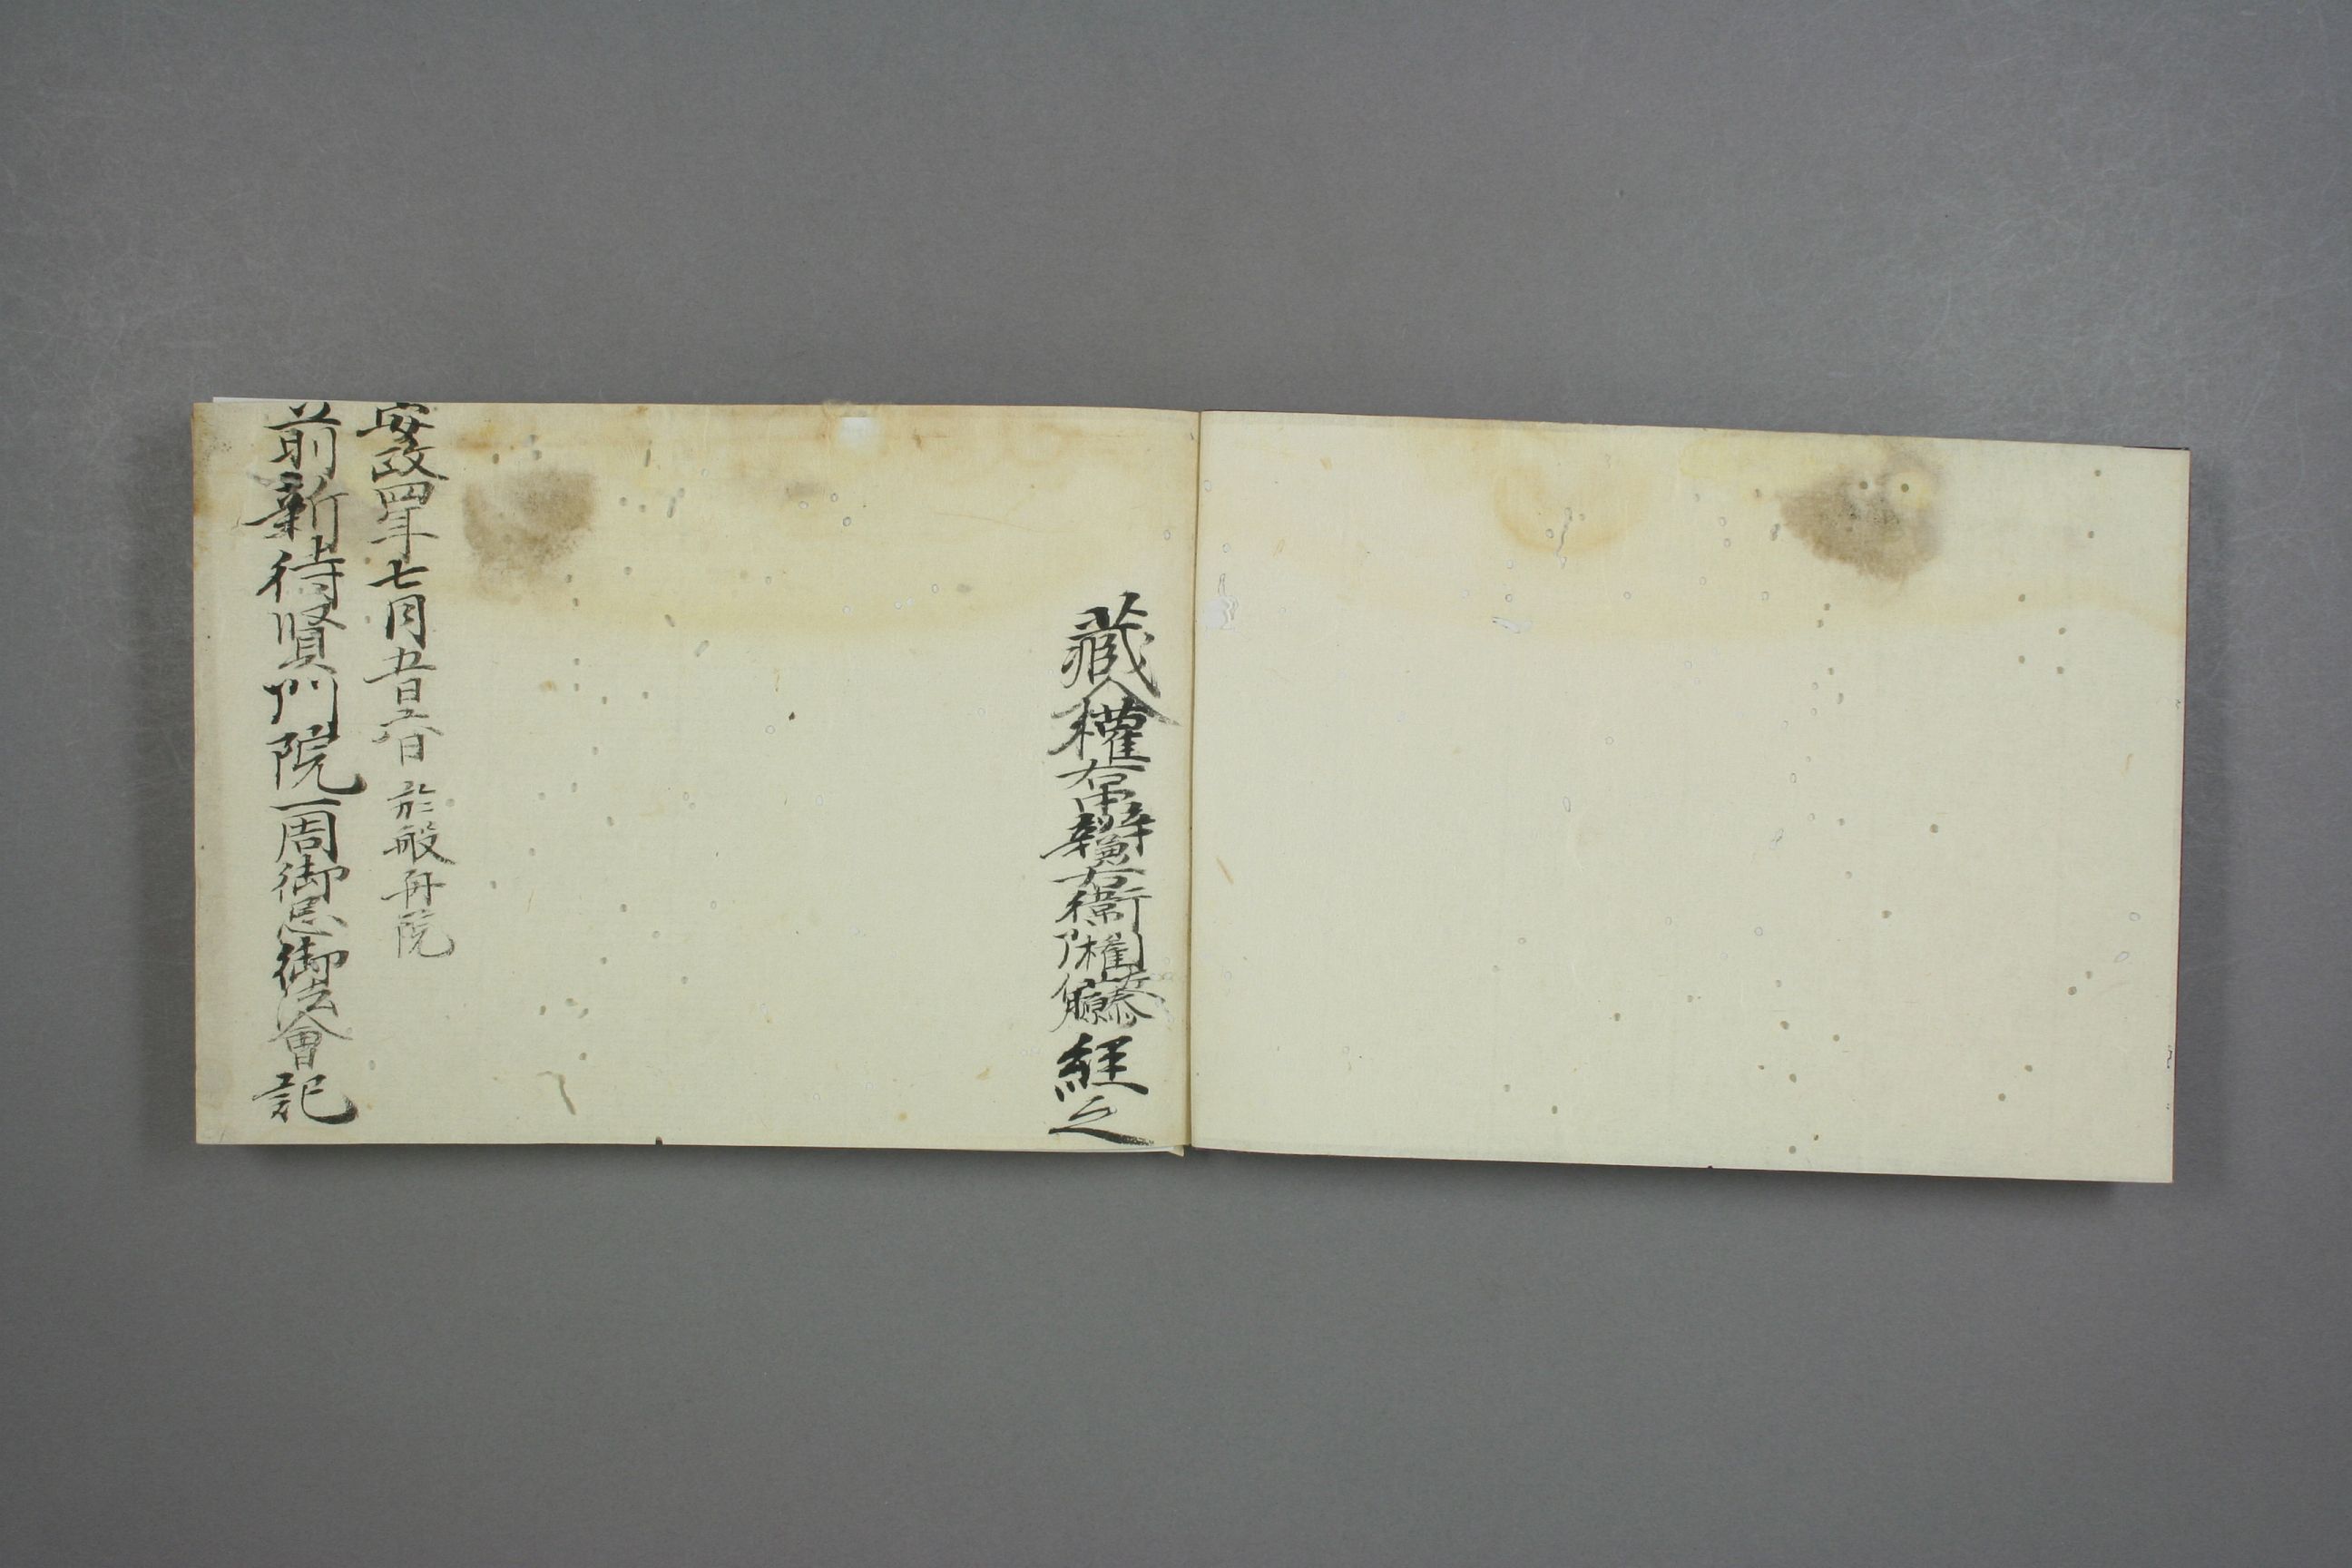 藏人權右中辨兼右衛門權佐藤原経之
安政四年七月五日六日 於般舟院
前新待賢門院一周御忌御法會記